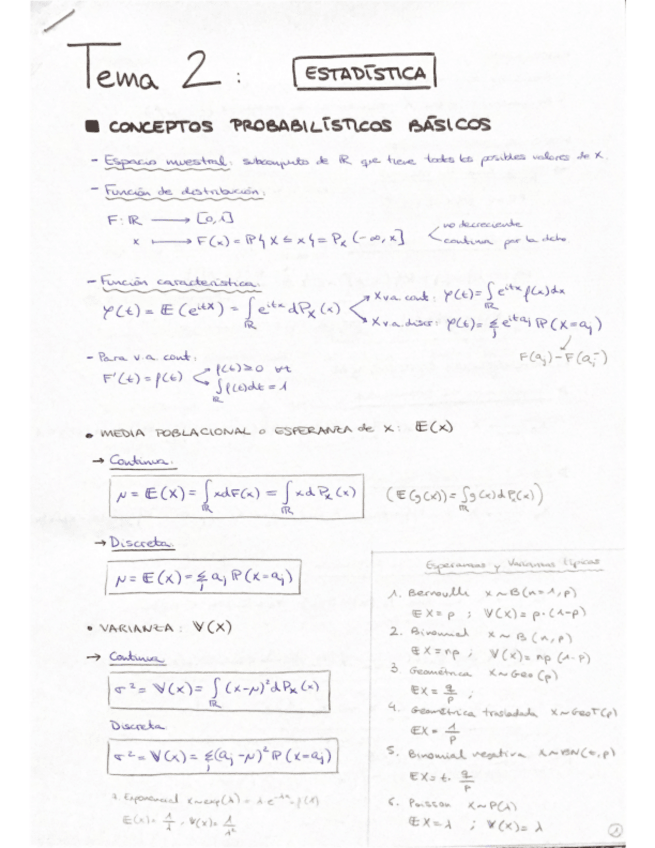 Tema 2:
ESTADÍSTICA
■ CONCEPTOS PROBABILÍSTICOS BÁSICOS
- Espacio muestral: subconjunto de ℝ que tiene todos los posibles valores de X.
- Función de distribución:
F: ℝ → [0,1]
x ↦ F(x) = ℙ{X ≤ x} = Pₓ(-∞, x]
no decreciente
continua por la dcha
- Función característica:
φ(t) = 𝔼(e^{itX}) = ∫_ℝ e^{itx} dPₓ(x)
X v.a. cont: φ(t) = ∫_ℝ e^{itx} f(x)dx
X v.a. discr: φ(t) = Σ_j e^{itaj} ℙ(X=aj)
F(aj) - F(aj⁻)
- Para v.a. cont:
F'(t) = f(t)
f(t) ≥ 0 ∀t
∫_ℝ f(t)dt = 1
• MEDIA POBLACIONAL o ESPERANZA de X: 𝔼(X)
→ Continua:
μ = 𝔼(X) = ∫_ℝ x dF(x) = ∫_ℝ x dPₓ(x)
(𝔼(g(x)) = ∫_ℝ g(x) dPₓ(x))
→ Discreta:
μ = 𝔼(X) = Σ_j aj ℙ(X=aj)
• VARIANZA: 𝕍(X)
→ Continua
σ² = 𝕍(X) = ∫_ℝ (x-μ)² dPₓ(x)
Discreta
σ² = 𝕍(X) = Σ_j (aj-μ)² ℙ(X=aj)
7. Exponencial X~exp(λ) = λ e^{-λx} = f(x)
𝔼(X) = 1/λ , 𝕍(X) = 1/λ²
Esperanzas y Varianzas típicas
1. Bernoulli X~B(n=1,p)
𝔼X = p ; 𝕍(X) = p·(1-p)
2. Binomial X~B(n,p)
𝔼X = np ; 𝕍(X) = np(1-p)
3. Geométrica X~Geo(p)
𝔼X = q/p ;
4. Geométrica trasladada X~GeoT(p)
𝔼X = 1/p
5. Binomial negativa X~BN(t,p)
𝔼X = t· q/p
6. Poisson X~P(λ)
𝔼X = λ ; 𝕍(X) = λ
1